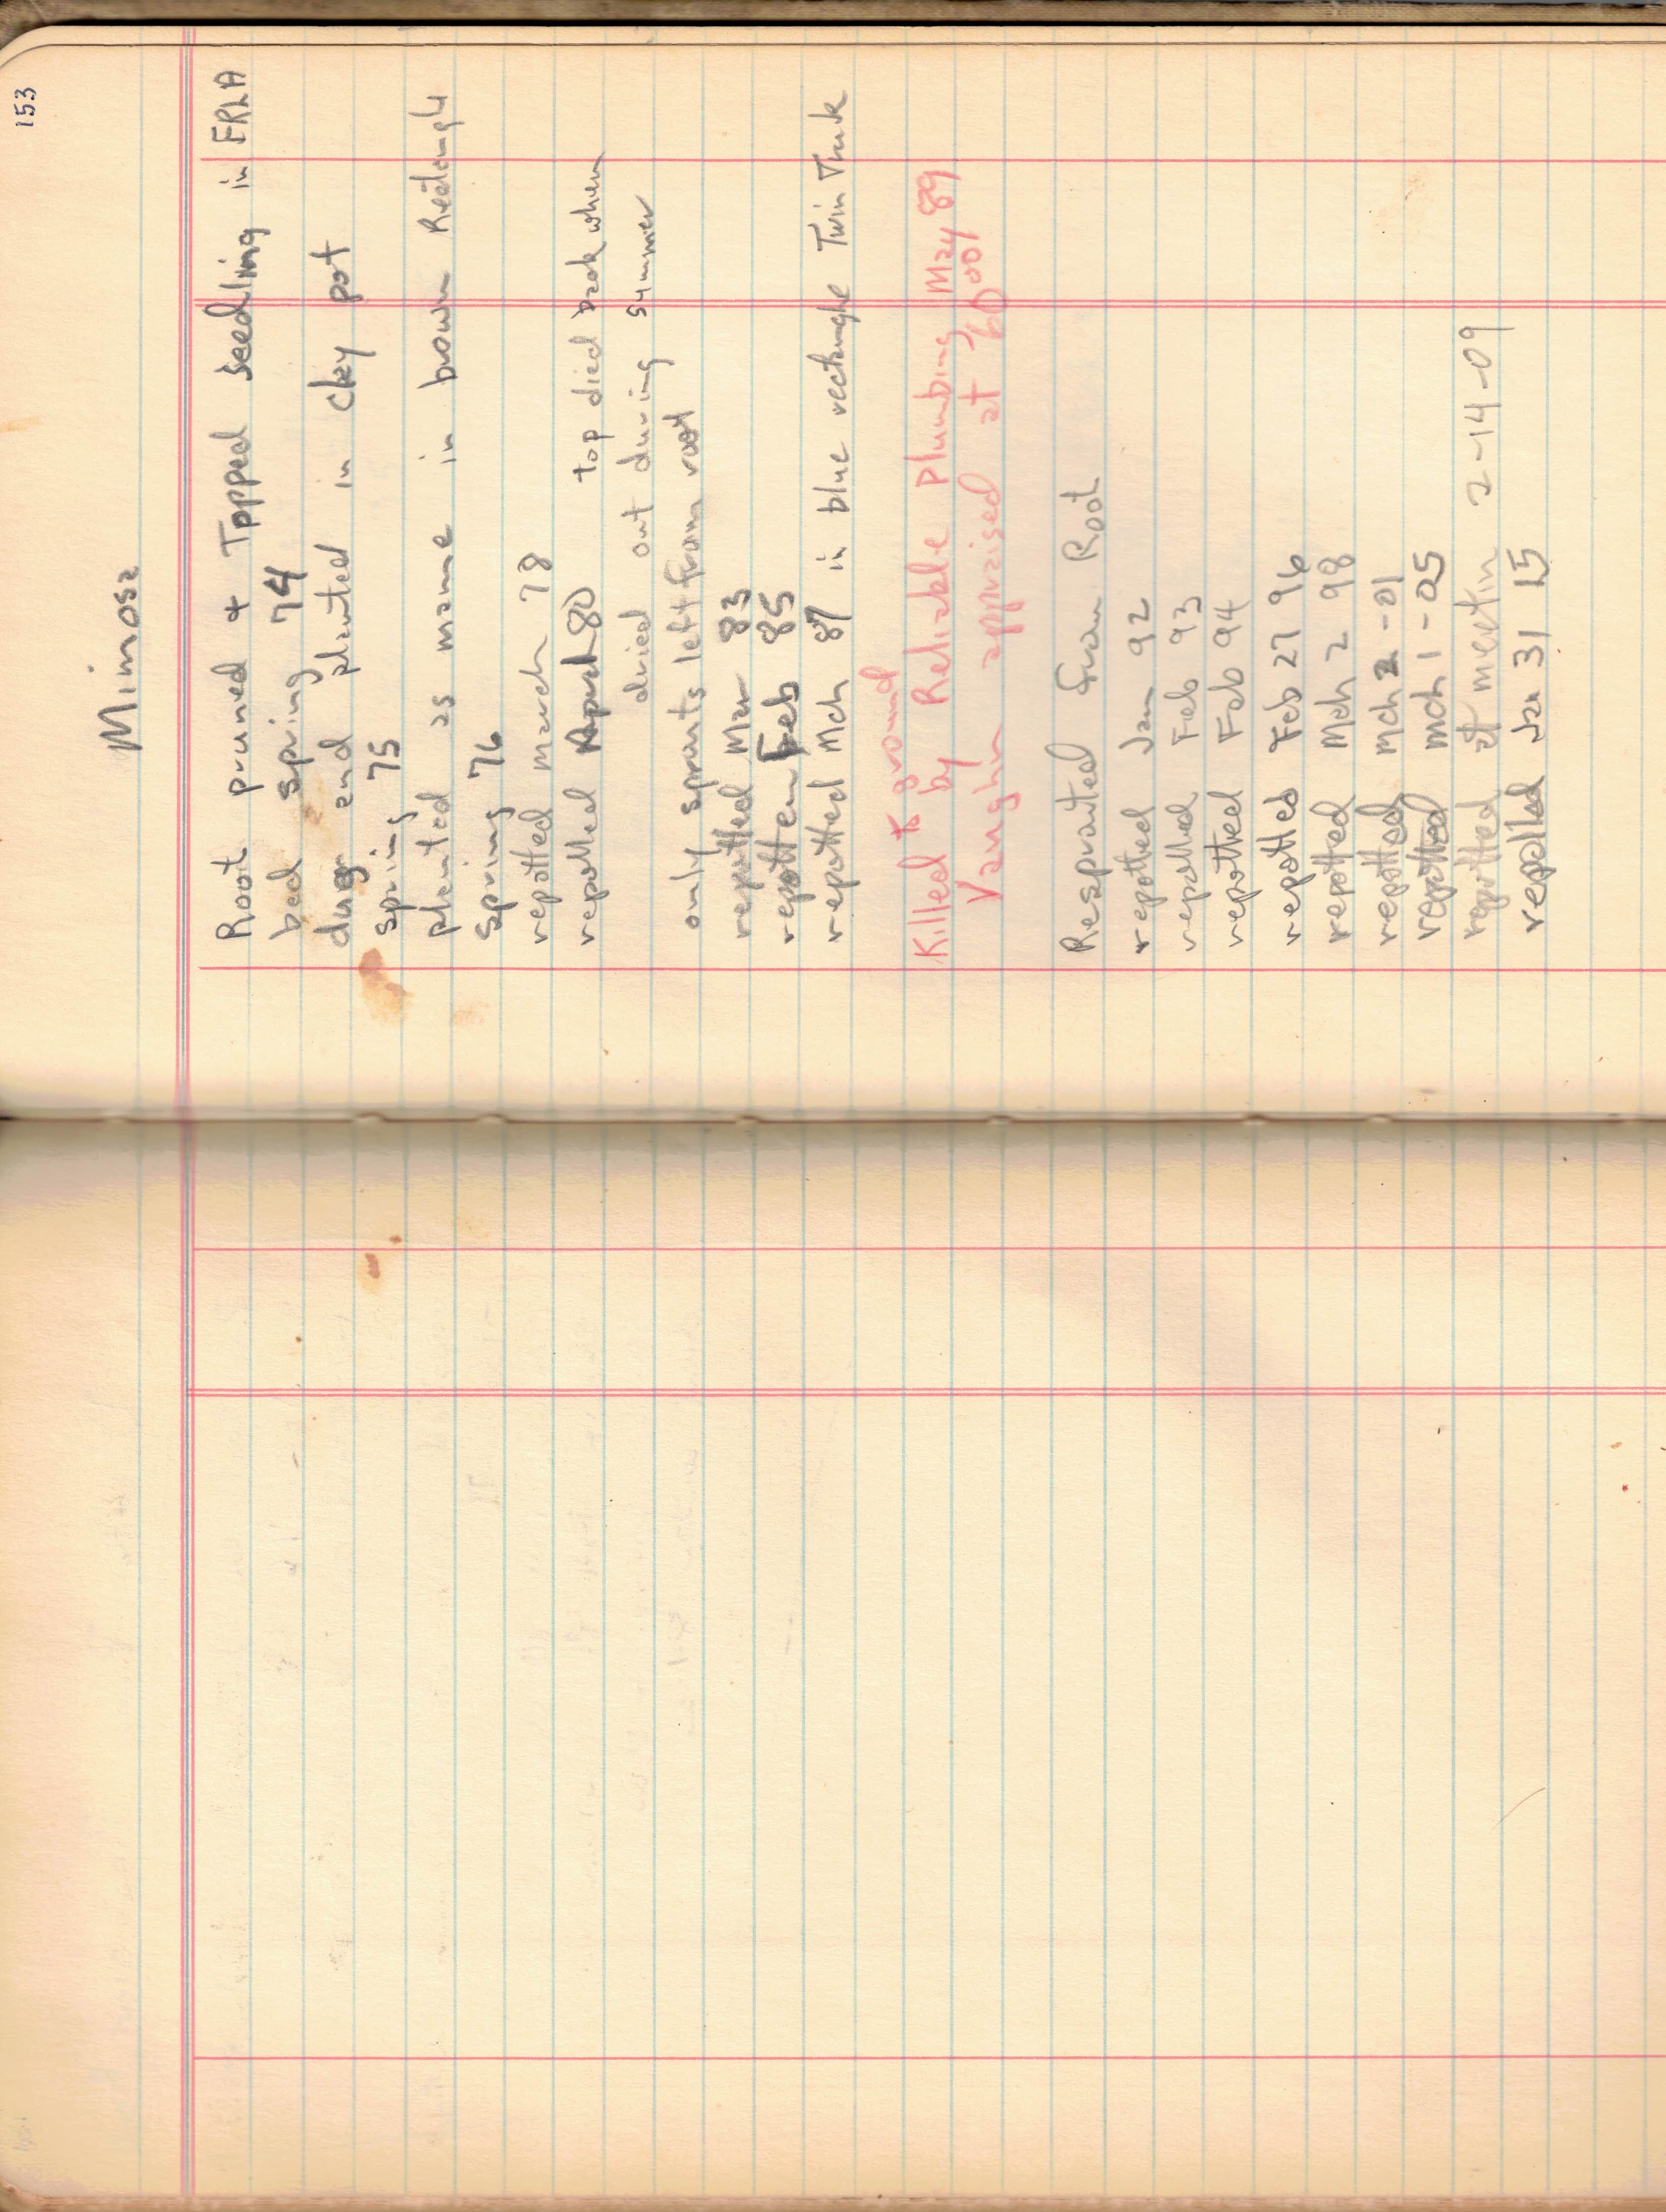 153
Mimosa
Root pruned & Topped Seedling in ERLA
bed spring 74
dug and planted in clay pot
spring 75
planted as mame in brown Rectangle
spring 76
repotted march 78
repotted April 80 top died back when
dried out during summer
only sprouts left from root
repotted Mar 83
repotten Feb 85
repotted Mch 87 in blue rectangle Twin Trunk
to ground
Killed by Reliable Plumbing May 89
Vaughn appraised at 60 00
Resprouted from Root
repotted Jan 92
repotted Feb 93
repotted Feb 94
repotted Feb 27 96
repotted Mch 2 98
repotted mch 2 -01
repotted mch 1 -05
repotted at meetin 2-14-09
repotted Jan 31 15